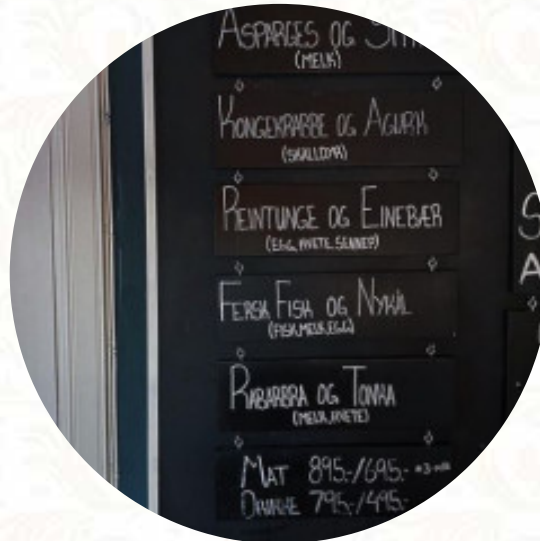 ASPARGES OG
(MELK)
KONGEKRABBE OG AGURK
(SKALLDYR)
REINTUNGE OG EINEBÆR
(EGG, HVETE, SENNEP)
FERSK FISK OG NYKÅL
(FISK, MELK, EGG)
RABARBRA OG TONKA
(MELK, HVETE)
MAT 895,-/695,-
DRIKKE 795,-/495,-
S
A